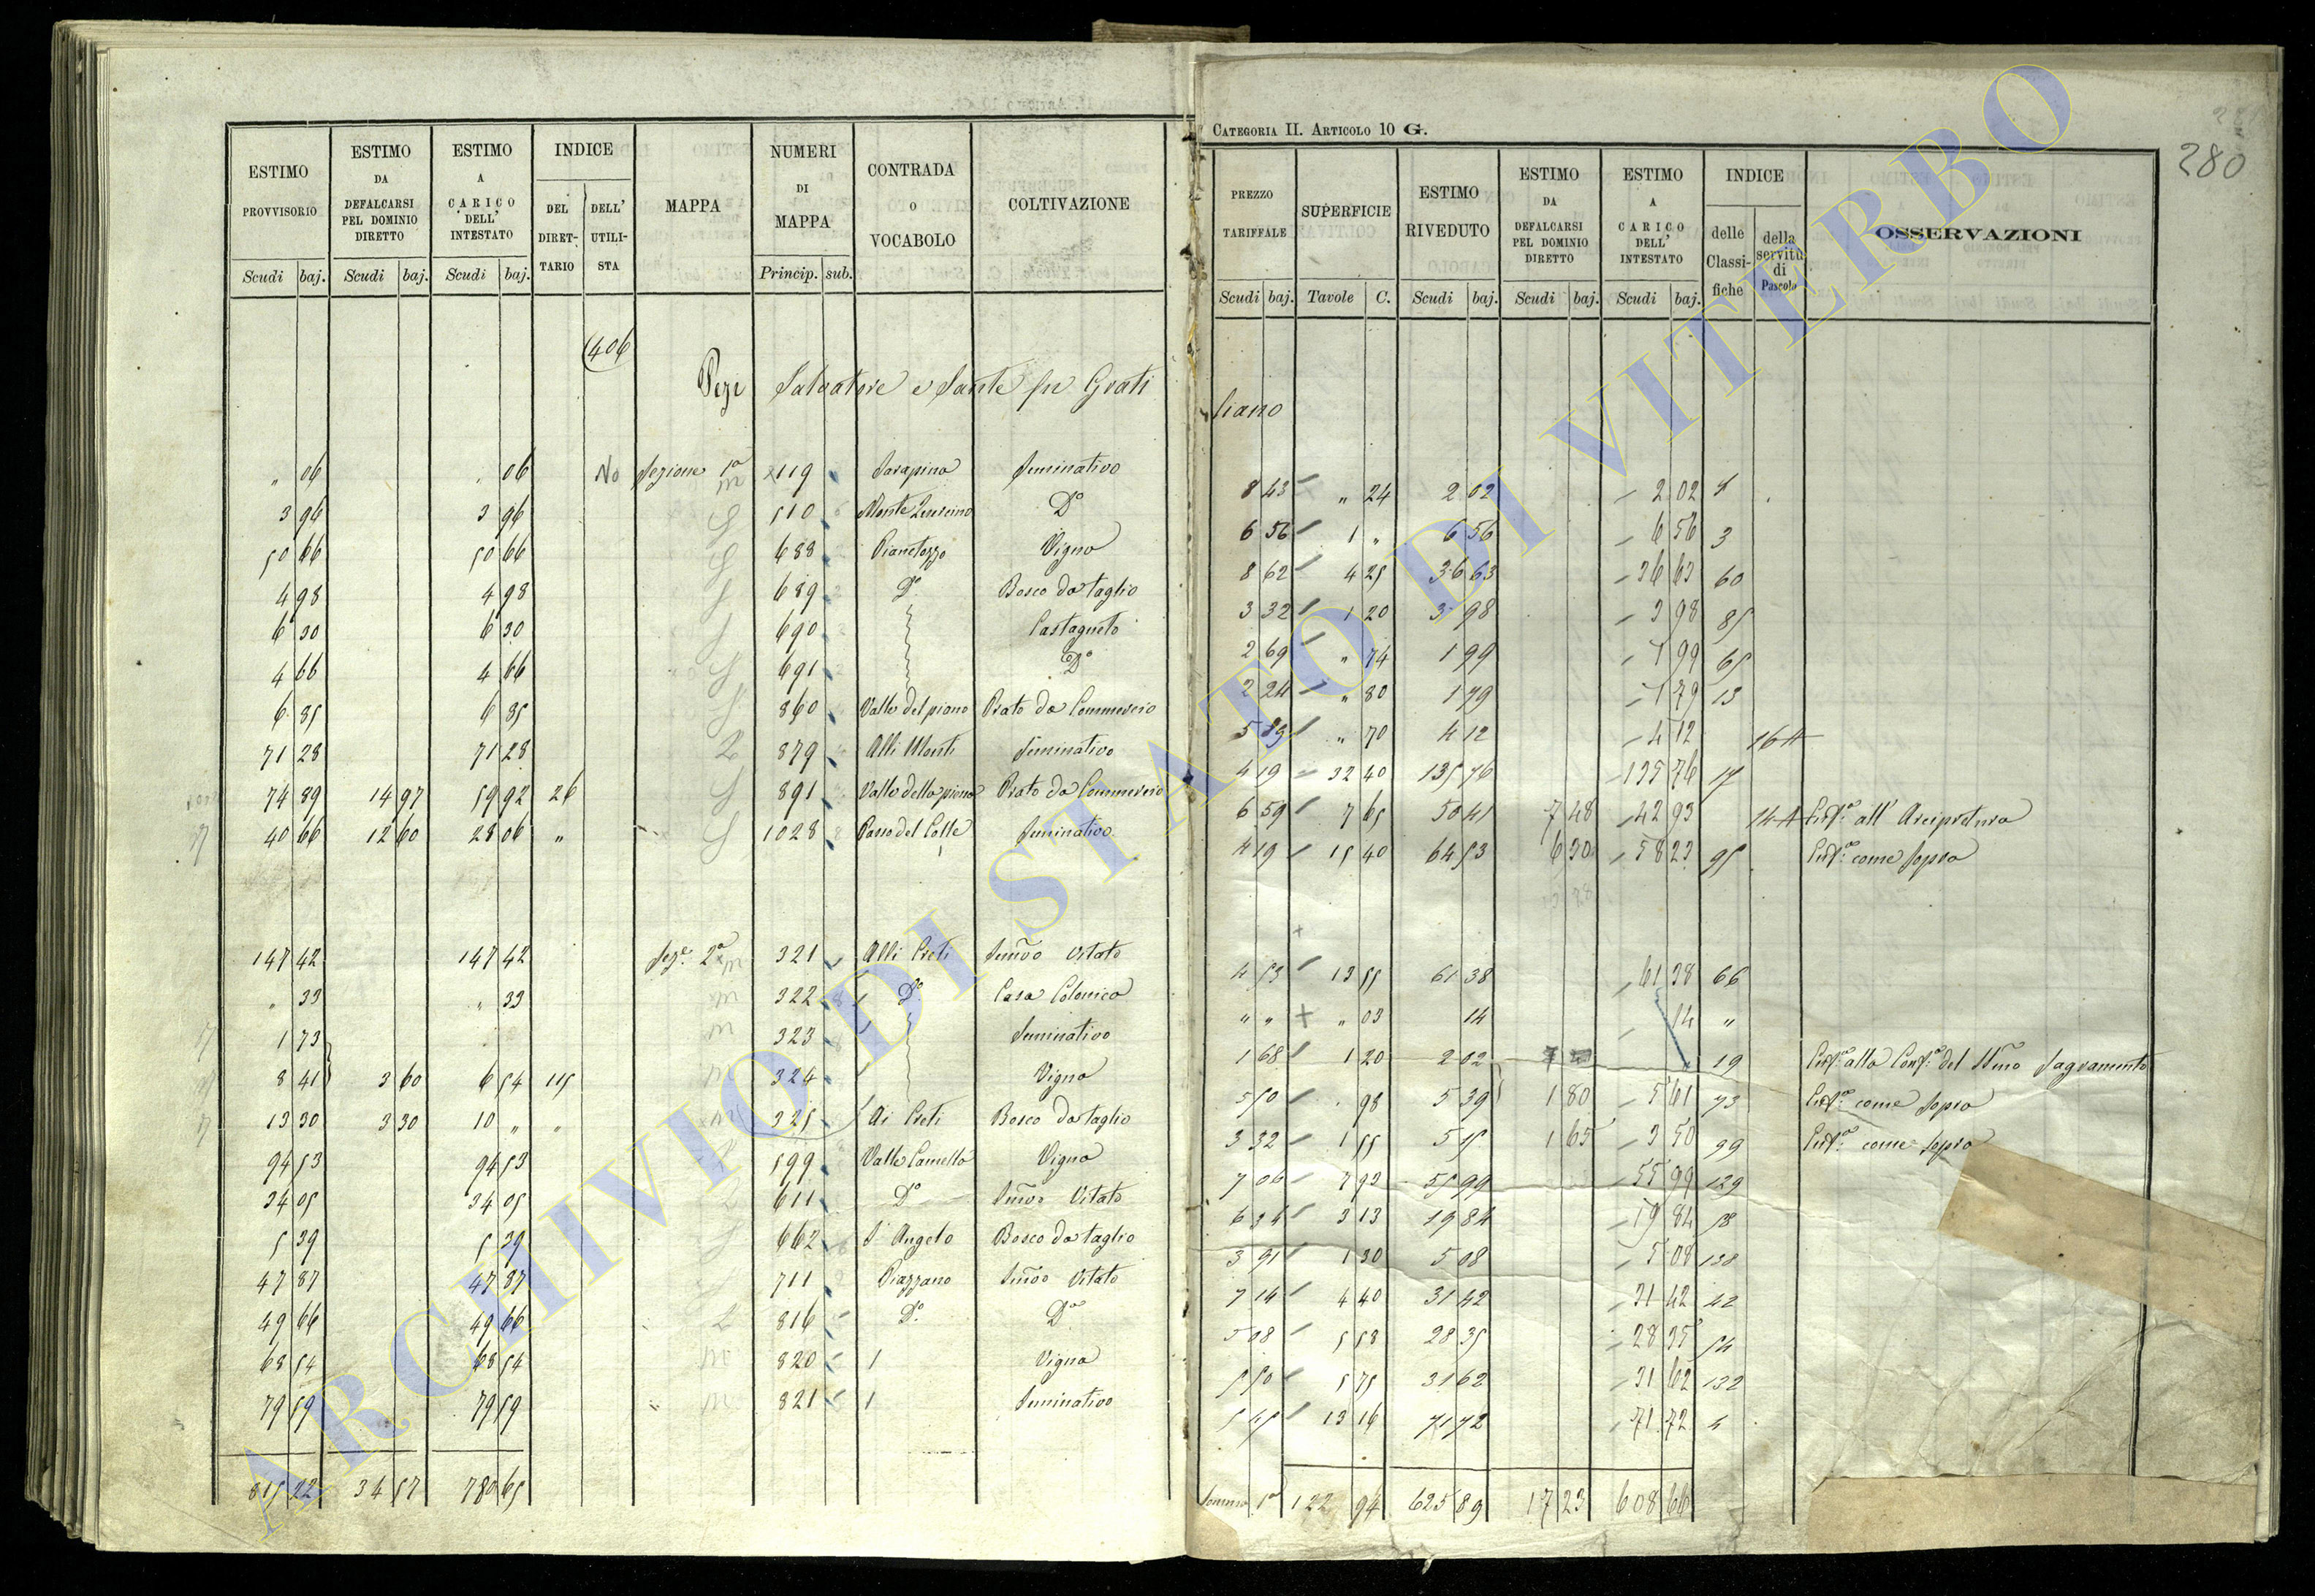 CATEGORIA II. ARTICOLO 10 G.
280
ESTIMO PROVVISORIO Scudi baj. | ESTIMO DA DEFALCARSI PEL DOMINIO DIRETTO Scudi baj. | ESTIMO A CARICO DELL' INTESTATO Scudi baj. | INDICE DEL DIRETTARIO DELL' UTILISTA | MAPPA | NUMERI DI MAPPA Princip. sub. | CONTRADA O VOCABOLO | COLTIVAZIONE | PREZZO TARIFFALE Scudi baj. | SUPERFICIE Tavole C. | ESTIMO RIVEDUTO Scudi baj. | ESTIMO DA DEFALCARSI PEL DOMINIO DIRETTO Scudi baj. | ESTIMO A CARICO DELL' INTESTATO Scudi baj. | INDICE delle Classifiche della servitù di Pascolo | OSSERVAZIONI
406
Salvatore e Sante fu Grati liano
" 06 " 06 No Sezione 1a 119 Sarapina Seminativo 8 43 " 24 2 02 2 02
3 96 3 96 510 Do 6 56 1 " 6 56 6 56 3
50 66 50 66 688 Pianetozzo Vigna 8 62 4 25 36 63 36 63 60
4 98 4 98 689 Do Bosco da taglio 3 32 1 20 3 98 3 98 85
6 30 6 30 690 Castagneto 2 69 " 74 1 99 1 99 65
4 66 4 66 691 Do 2 24 " 80 1 79 1 79 13
6 85 6 85 860 Valle del piano Prato da Commercio 5 89 " 70 4 12 4 12 16 A
71 28 71 28 879 Alli Monti Seminativo 4 19 32 40 135 76 135 76 17
74 89 14 97 59 92 26 891 Valle della piana Prato da Commercio 6 59 7 65 50 41 7 48 42 93 14 A all' Arcipretura
40 66 12 60 28 06 " 1028 Passo del Colle Seminativo 4 19 15 40 64 53 6 30 58 23 95 come sopra
147 42 147 42 Seze 2a 321 Alli Preti Semvo Vitato 4 53 13 55 61 38 61 38 66
" 33 " 33 322 Do Casa Colonica " " " 03 14 14 "
1 73 323 Seminativo 1 68 1 20 2 02 19 alla del Sagramento
8 41 3 60 6 54 115 324 Vigna 5 50 98 5 39 1 80 5 61 73 come sopra
13 30 3 30 10 " " 325 Ai Preti Bosco da taglio 3 32 1 55 5 15 1 65 3 50 99 come sopra
94 53 94 53 599 Valle Camella Vigna 7 06 7 93 55 99 55 99 129
34 05 34 05 611 Do Semvo Vitato 6 34 3 13 19 84 19 84 58
5 39 5 39 662 S. Angelo Bosco da taglio 3 91 1 30 5 08 5 08 130
47 87 47 87 711 Piazzano Semvo Vitato 7 14 4 40 31 42 31 42 42
49 66 49 66 816 Do Do 5 08 5 58 28 35 28 35 54
68 54 68 54 820 Vigna 5 50 5 75 31 62 31 62 132
79 59 79 59 821 Seminativo 5 45 13 16 71 72 71 72 4
815 22 34 57 780 65 Somma 122 94 625 89 17 23 608 66
ARCHIVIO DI STATO DI VITERBO